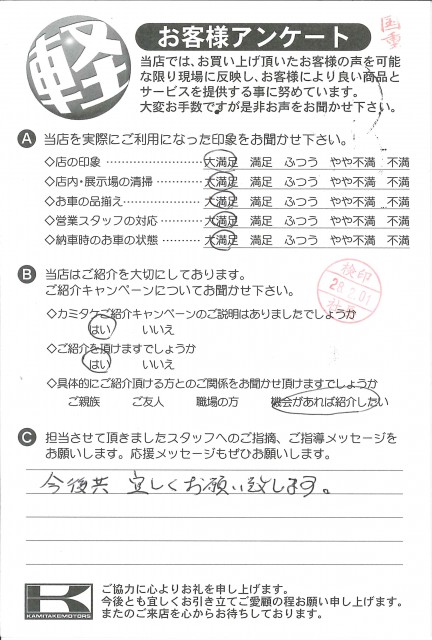 軽
お客様アンケート
当店では、お買い上げ頂いたお客様の声を可能
な限り現場に反映し、お客様により良い商品と
サービスを提供する事に努めています。
大変お手数ですが是非お声をお聞かせ下さい。
A 当店を実際にご利用になった印象をお聞かせ下さい。
◇店の印象 ………………… 大満足 満足 ふつう やや不満 不満
◇店内・展示場の清掃 ………… 大満足 満足 ふつう やや不満 不満
◇お車の品揃え……………… 大満足 満足 ふつう やや不満 不満
◇営業スタッフの対応 ………… 大満足 満足 ふつう やや不満 不満
◇納車時のお車の状態 ………… 大満足 満足 ふつう やや不満 不満
B 当店はご紹介を大切にしております。
ご紹介キャンペーンについてお聞かせ下さい。
検印
28.2.01
◇カミタケご紹介キャンペーンのご説明はありましたでしょうか
はい いいえ
◇ご紹介を頂けますでしょうか
はい いいえ
◇具体的にご紹介頂ける方とのご関係をお聞かせ頂けますでしょうか
ご親族 ご友人 職場の方 機会があれば紹介したい
C 担当させて頂きましたスタッフへのご指摘、ご指導メッセージを
お願いします。応援メッセージもぜひお願いします。
今後共 宜しくお願い致します。
K
KAMITAKEMOTORS
ご協力に心よりお礼を申し上げます。
今後とも宜しくお引き立てご愛顧の程お願い申し上げます。
またのご来店を心からお待ちしております。